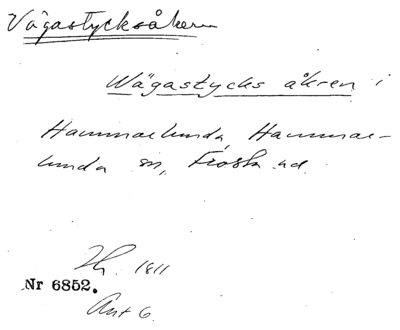 Vägastycksåkern
Wägastycks åkren i
Hammarlunda, Hammar-
lunda sn, Frosta hd.
1811
Nr 6852.
Akt 6.